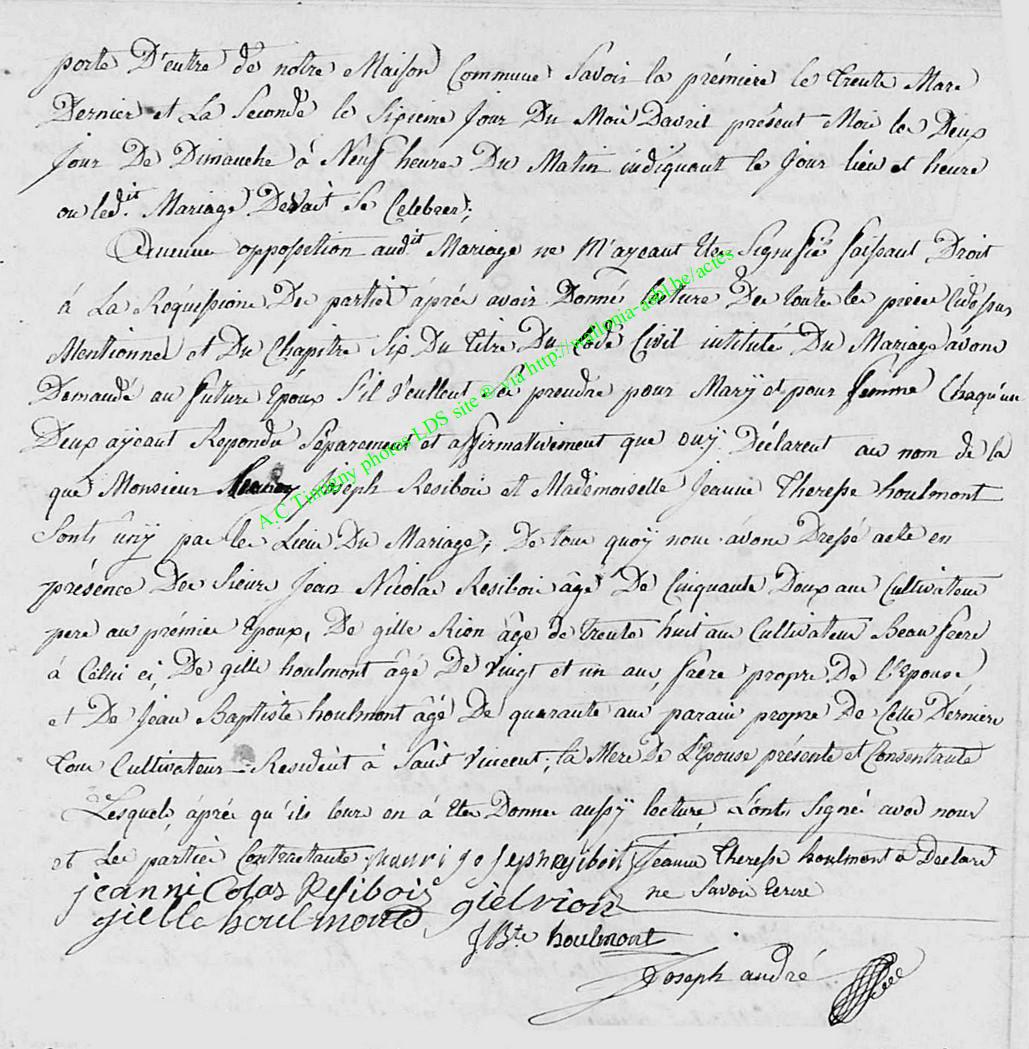 porte D'entre de notre Maison Commune Savoir la prémiere le trente Mars
Dernier et La Seconde le Sixieme Jour Du Mois D'avril présent Mois les Deux
Jour De Dimanche à Neuf heure Du Matin indiquant le Jour lieu et heure
ou ledit Mariage Devait Se Celebrer;
Aucune opposition audit Mariage ne M'ayeant Etes Signifié faisant Droit
à La Requissions Des partiés aprés avoir Donnés lecture De toutes les pièces Cidessus
Mentionnes et Du Chapitre Six Du titre Du Code Civil intitulé Du Mariage avons
Demandé au future Epoux S'il Veullent Se prendre pour Mary et pour femme Chaqu'un
Deux ayeant Repondu Séparement et affirmativement que ouÿ Déclarent au nom de la
que Monsieur Joseph Resibois et Mademoiselle Jeanne Therese houlmont
Sonts ûny par les Liens Du Mariage; De tous quoÿ nous avons Dressé acte en
présence Des Sieurs Jean Nicolas Resibois âgé De Cinquante Deux ans Cultivateur
pere au prémier Epoux, De gille Rion âgé de trente huit ans Cultivateur Beau frère
à Celui ci, De gille houlmont âgé De vingt et un ans, frère propre De l'Epouse
et De Jean Baptiste houlmont âgé De quarante ans parain propre De Cette Dernière
tous Cultivateur Resident à Saint Vincent; la Mere De L'Epouse présente et Consentante
Lesquels, áprés qu'ils leurs en à Etes Donne aussÿ lecture L'onts Signé avec nous
et Les partiés Contractante, Jeanne Therese houlmont a Declaré
ne Savoir Ecrire
henri joseph resiboit
jeannicolas Resibois
gielrion
gielle houlmont
JBte houlmont
Joseph andré
A.C Tintigny photos LDS site © via http://wallonia-asbl.be/actes